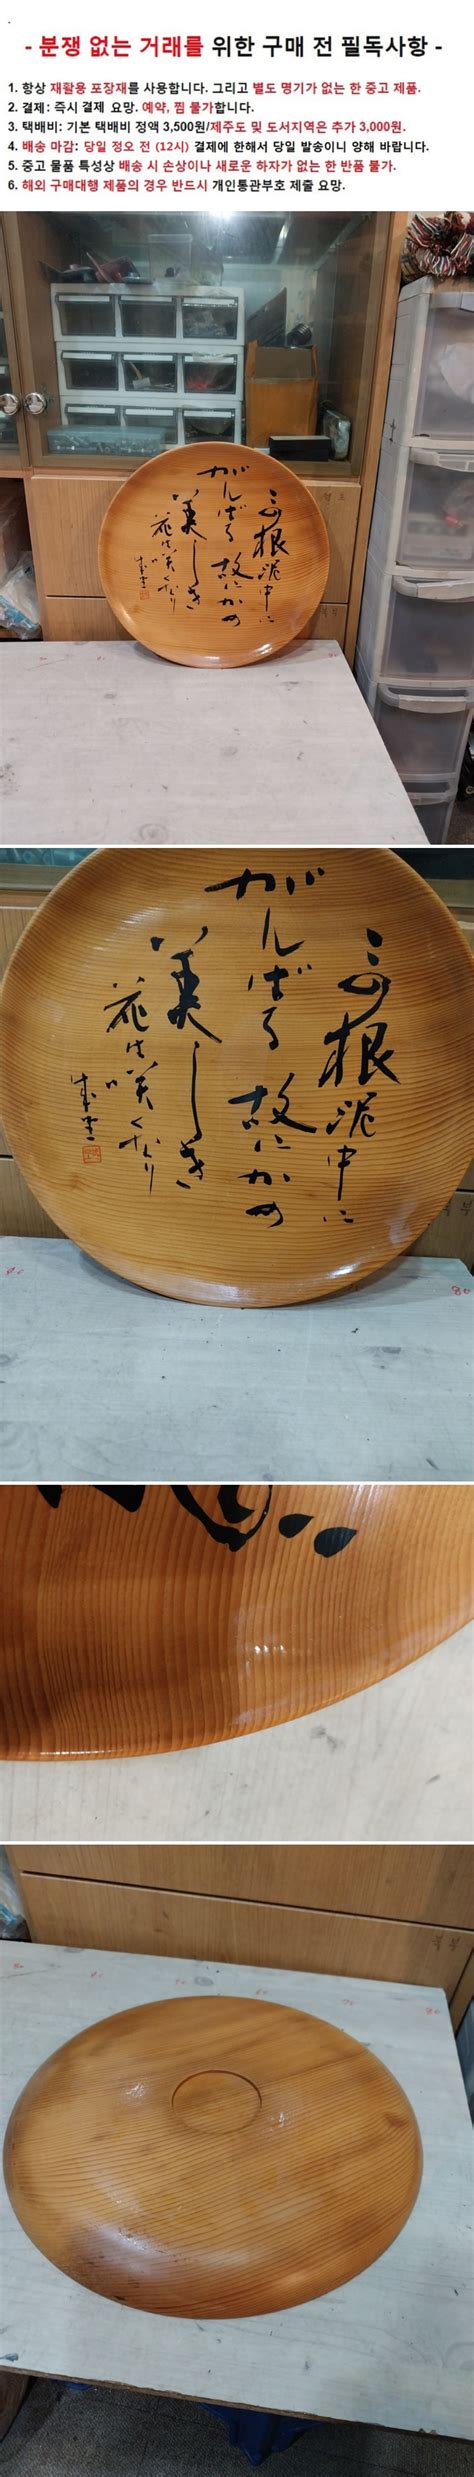 - 분쟁 없는 거래를 위한 구매 전 필독사항 -
1. 항상 재활용 포장재를 사용합니다. 그리고 별도 명기가 없는 한 중고 제품.
2. 결제: 즉시 결제 요망. 예약, 찜 불가합니다.
3. 택배비: 기본 택배비 정액 3,500원/제주도 및 도서지역은 추가 3,000원.
4. 배송 마감: 당일 정오 전 (12시) 결제에 한해서 당일 발송이니 양해 바랍니다.
5. 중고 물품 특성상 배송 시 손상이나 새로운 하자가 없는 한 반품 불가.
6. 해외 구매대행 제품의 경우 반드시 개인통관부호 제출 요망.
根泥中に
がんばる故にかの
美しき
花は咲くなり
80